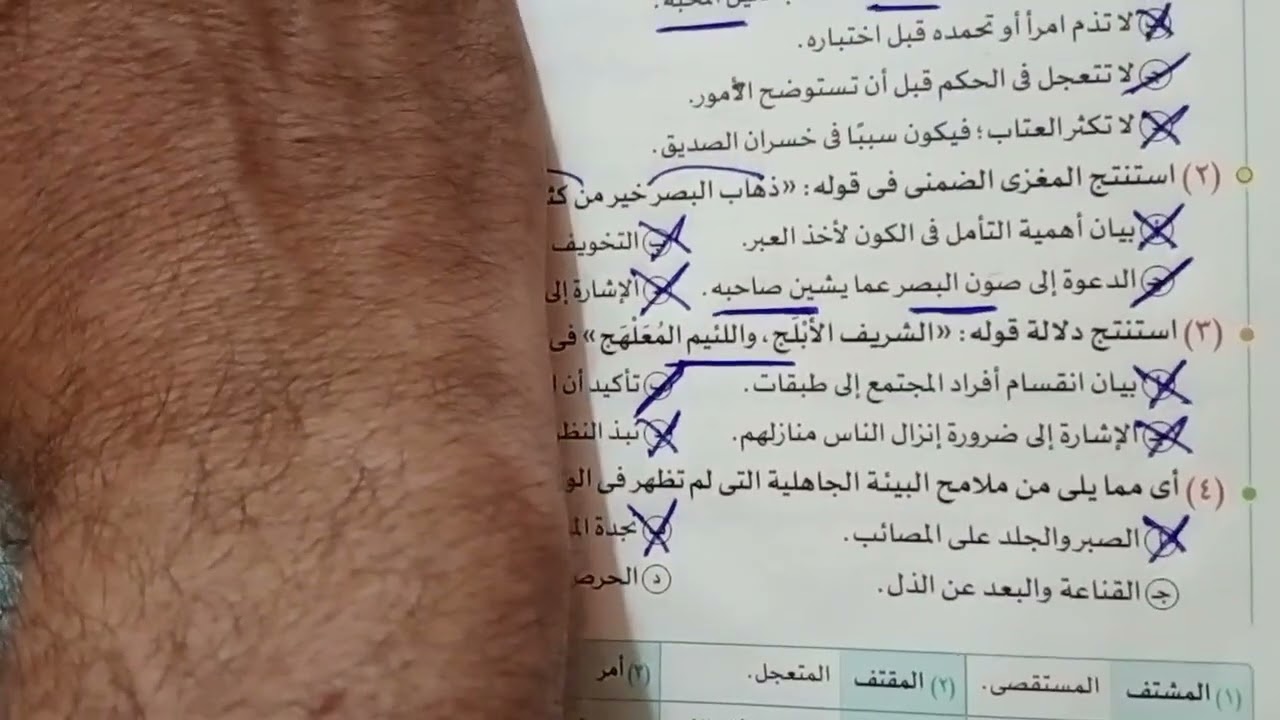 المحبة.
لا تذم امرأ أو تحمده قبل اختباره.
جـ لا تتعجل فى الحكم قبل أن تستوضح الأمور.
لا تكثر العتاب؛ فيكون سببًا فى خسران الصديق.
(٢) استنتج المغزى الضمنى فى قوله: «ذهاب البصر خير من
بيان أهمية التأمل فى الكون لأخذ العبر. ب التخويف
جـ الدعوة إلى صون البصر عما يشين صاحبه. الإشارة إلى
(٣) استنتج دلالة قوله: «الشريف الأَبْلَج، واللئيم المُعَلْهَج» فى
بيان انقسام أفراد المجتمع إلى طبقات. ب تأكيد أن
جـ الإشارة إلى ضرورة إنزال الناس منازلهم. نبذ
(٤) أى مما يلى من ملامح البيئة الجاهلية التى لم تظهر فى
الصبر والجلد على المصائب. نجدة
جـ القناعة والبعد عن الذل. د
(١) المشتف المستقصى. (٢) المقتف المتعجل. (٣) أمر